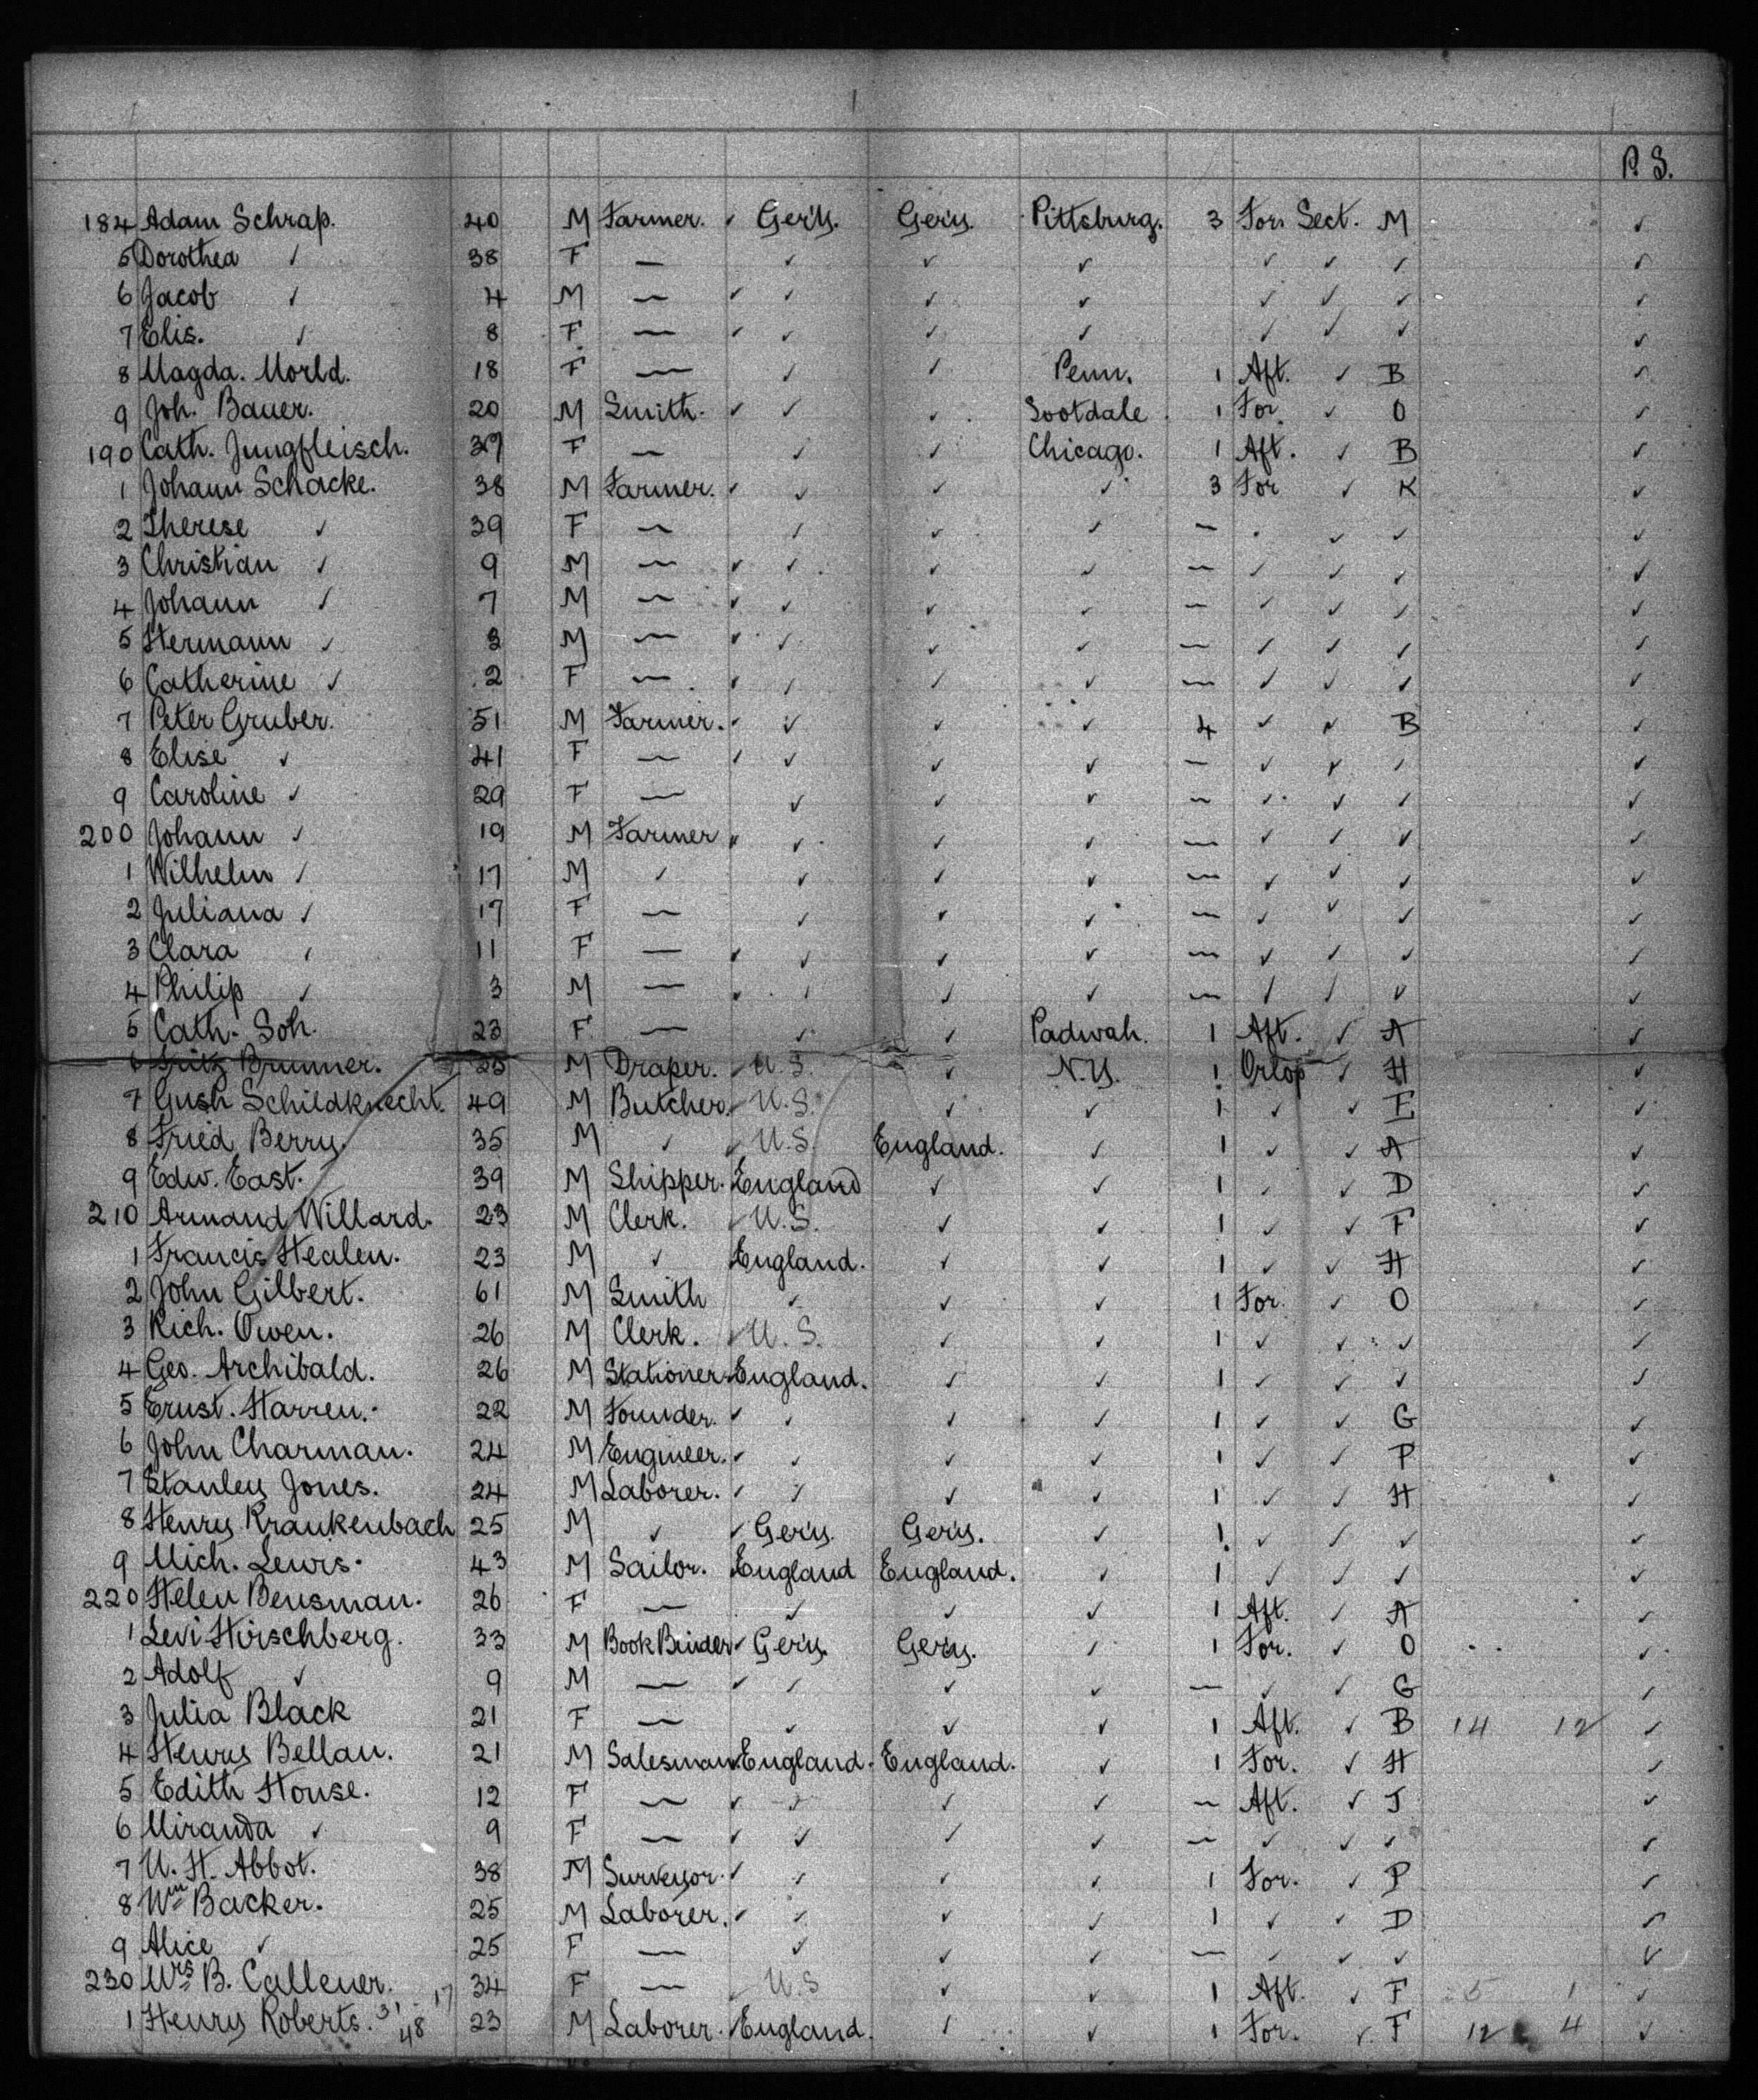 P. S.
184 Adam Schrap. 40 M Farmer. ✓ Ger'y. Ger'y. Pittsburg. 3 For. Sect. M ✓
5 Dorothea ✓ 38 F — ✓ ✓ ✓ ✓ ✓ ✓ ✓
6 Jacob ✓ 4 M — ✓ ✓ ✓ ✓ ✓ ✓ ✓ ✓
7 Elis. ✓ 8 F — ✓ ✓ ✓ ✓ ✓ ✓ ✓ ✓
8 Magda. Morld. 18 F — ✓ ✓ Penn. 1 Aft. ✓ B ✓
9 Joh. Bauer. 20 M Smith. ✓ ✓ ✓ Sootdale 1 For ✓ O ✓
190 Cath. Jungfleisch. 37 F — ✓ ✓ Chicago. 1 Aft. ✓ B ✓
1 Johann Schacke. 38 M Farmer. ✓ ✓ ✓ ✓ 3 For ✓ K ✓
2 Therese ✓ 39 F — ✓ ✓ ✓ — . ✓ ✓ ✓
3 Christian ✓ 9 M — ✓ ✓ ✓ ✓ — ✓ ✓ ✓ ✓
4 Johann ✓ 7 M — ✓ ✓ ✓ ✓ — ✓ ✓ ✓ ✓
5 Hermann ✓ 3 M — ✓ ✓ ✓ ✓ — ✓ ✓ ✓ ✓
6 Catherine ✓ 2 F — ✓ ✓ ✓ ✓ — ✓ ✓ ✓ ✓
7 Peter Gruber. 51 M Farmer. ✓ ✓ ✓ ✓ 4 ✓ ✓ B ✓
8 Elise ✓ 41 F — ✓ ✓ ✓ ✓ — ✓ ✓ ✓ ✓
9 Caroline ✓ 29 F — ✓ ✓ ✓ — ✓ ✓ ✓ ✓
200 Johann ✓ 19 M Farmer ✓ ✓ ✓ ✓ — ✓ ✓ ✓ ✓
1 Wilhelm ✓ 17 M ✓ ✓ ✓ ✓ — ✓ ✓ ✓ ✓
2 Juliana ✓ 17 F — ✓ ✓ ✓ — ✓ ✓ ✓ ✓
3 Clara ✓ 11 F — ✓ ✓ ✓ ✓ — ✓ ✓ ✓ ✓
4 Philip ✓ 3 M — ✓ ✓ ✓ ✓ — ✓ ✓ ✓ ✓
5 Cath. Soh. 23 F — ✓ ✓ Padwah. 1 Aft. ✓ A ✓
6 Fritz Brunner. 25 M Draper. ✓ U.S. ✓ N.Y. 1 Orlop ✓ H ✓
7 Gush Schildknecht. 49 M Butcher. ✓ U.S. ✓ ✓ 1 ✓ ✓ E ✓
8 Fried Berry. 35 M ✓ ✓ U.S. England. ✓ 1 ✓ ✓ A ✓
9 Edw. East. 39 M Shipper. England ✓ ✓ 1 ✓ ✓ D ✓
210 Armand Willard. 23 M Clerk. ✓ U.S. ✓ ✓ 1 ✓ ✓ F ✓
1 Francis Healen. 23 M ✓ England. ✓ ✓ 1 ✓ ✓ H ✓
2 John Gilbert. 61 M Smith ✓ ✓ ✓ 1 For. ✓ O ✓
3 Rich. Owen. 26 M Clerk. ✓ U.S. ✓ ✓ 1 ✓ ✓ ✓ ✓
4 Geo. Archibald. 26 M Stationer England. ✓ ✓ 1 ✓ ✓ ✓ ✓
5 Ernst. Harren. 22 M Founder. ✓ ✓ ✓ ✓ 1 ✓ ✓ G ✓
6 John Charman. 24 M Engineer. ✓ ✓ ✓ ✓ 1 ✓ ✓ P ✓
7 Stanley Jones. 24 M Laborer. ✓ ✓ ✓ ✓ 1 ✓ ✓ H ✓
8 Henry Krankenbach 25 M ✓ ✓ Ger'y. Ger'y. ✓ 1 ✓ ✓ ✓ ✓
9 Mich. Lewis. 43 M Sailor. England England. ✓ 1 ✓ ✓ ✓ ✓
220 Helen Bensman. 26 F — ✓ ✓ ✓ 1 Aft. ✓ A ✓
1 Levi Hirschberg. 33 M Book Binder ✓ Ger'y. Ger'y. ✓ 1 For. ✓ O ✓
2 Adolf ✓ 9 M — ✓ ✓ ✓ ✓ — ✓ ✓ G ✓
3 Julia Black 21 F — ✓ ✓ ✓ 1 Aft. ✓ B 14 12 ✓
4 Henry Bellan. 21 M Salesman England. England. ✓ 1 For. ✓ H ✓
5 Edith House. 12 F — ✓ ✓ ✓ ✓ — Aft. ✓ J ✓
6 Miranda ✓ 9 F — ✓ ✓ ✓ ✓ — ✓ ✓ ✓ ✓
7 U. H. Abbot. 38 M Surveyor. ✓ ✓ ✓ ✓ 1 For. ✓ P ✓
8 Wm Backer. 25 M Laborer. ✓ ✓ ✓ ✓ 1 ✓ ✓ D ✓
9 Alice ✓ 25 F — ✓ ✓ ✓ — ✓ ✓ ✓ ✓
230 Mrs B. Callener. 34 F — ✓ U.S ✓ ✓ 1 Aft. ✓ F 5 1 ✓
1 Henry Roberts. 31 17 48 23 M Laborer. ✓ England. ✓ ✓ 1 For. ✓ F 12 4 ✓